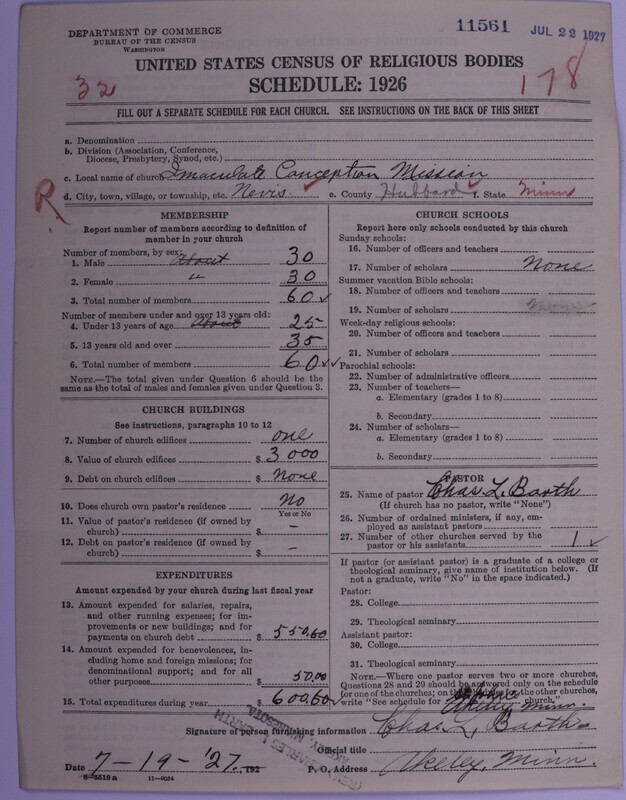 DEPARTMENT OF COMMERCE
BUREAU OF THE CENSUS
WASHINGTON
11561 JUL 22 1927
UNITED STATES CENSUS OF RELIGIOUS BODIES
SCHEDULE: 1926
32
178
FILL OUT A SEPARATE SCHEDULE FOR EACH CHURCH. SEE INSTRUCTIONS ON THE BACK OF THIS SHEET
a. Denomination
b. Division (Association, Conference,
Diocese, Presbytery, Synod, etc.)
c. Local name of church Imaculate Conception Mission
R
d. City, town, village, or township, etc. Nevis e. County Hubbard f. State Minn
MEMBERSHIP
Report number of members according to definition of
member in your church
Number of members, by sex:
1. Male About 30
2. Female " 30
3. Total number of members 60 ✓
Number of members under and over 13 years old:
4. Under 13 years of age About 25
5. 13 years old and over 35
6. Total number of members 60 ✓✓
NOTE.—The total given under Question 6 should be
same as the total of males and females given under Question 3.
CHURCH BUILDINGS
See instructions, paragraphs 10 to 12
7. Number of church edifices one
8. Value of church edifices $ 3000
9. Debt on church edifices $ None
10. Does church own pastor's residence No
Yes or No
11. Value of pastor's residence (if owned by
church) $ –
12. Debt on pastor's residence (if owned by
church) $ –
EXPENDITURES
Amount expended by your church during last fiscal year
13. Amount expended for salaries, repairs,
and other running expenses; for im-
provements or new buildings; and for
payments on church debt $ 550,60
14. Amount expended for benevolences, in-
cluding home and foreign missions; for
denominational support; and for all
other purposes $ 50,00
15. Total expenditures during year $ 600,60 ✓
CHURCH SCHOOLS
Report here only schools conducted by this church
Sunday schools:
16. Number of officers and teachers
17. Number of scholars None
Summer vacation Bible schools:
18. Number of officers and teachers
19. Number of scholars
Week-day religious schools:
20. Number of officers and teachers
21. Number of scholars
Parochial schools:
22. Number of administrative officers
23. Number of teachers—
a. Elementary (grades 1 to 8)
b. Secondary
24. Number of scholars—
a. Elementary (grades 1 to 8)
b. Secondary
PASTOR
25. Name of pastor Chas. L. Barth
(If church has no pastor, write "None")
26. Number of ordained ministers, if any, em-
ployed as assistant pastors
27. Number of other churches served by the
pastor or his assistants 1 ✓
If pastor (or assistant pastor) is a graduate of a college or
theological seminary, give name of institution below. (If
not a graduate, write "No" in the space indicated.)
Pastor:
28. College
29. Theological seminary
Assistant pastor:
30. College
31. Theological seminary
NOTE.—Where one pastor serves two or more churches,
Questions 28 and 29 should be answered only on the schedule
for one of the churches; on the schedules for the other churches,
write "See schedule for Akeley Minn. church."
(REV.) CHARLES L. BARTH
AKELEY, MINNESOTA
Signature of person furnishing information Chas. L. Barth
Official title
Date 7-19-'27, 192 P. O. Address Akeley, Minn.
8-5518a 11-9034